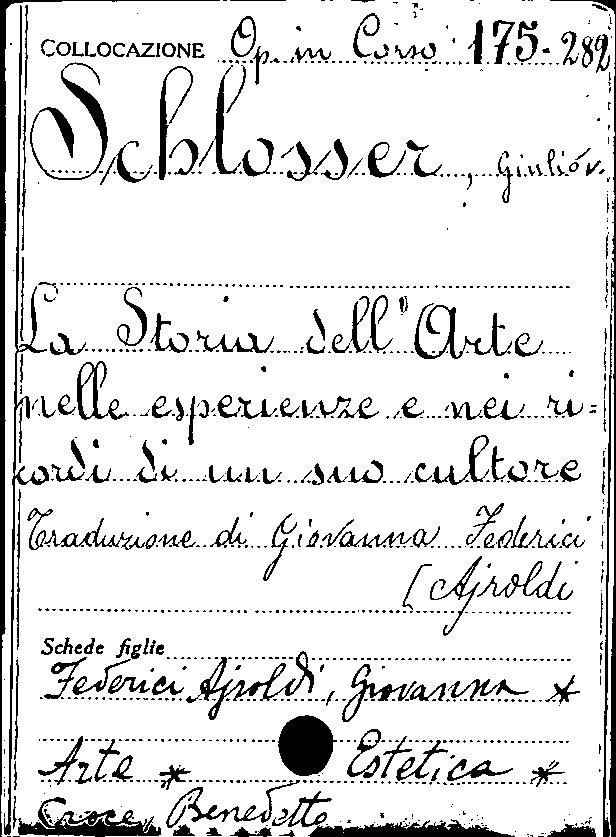 COLLOCAZIONE Op. in Corso 175-282
Schlosser, Giulio v.
La Storia dell'Arte
nelle esperienze e nei ri=
cordi di un suo cultore
Traduzione di Giovanna Federici
[Ajroldi
Schede figlie
Federici Ajroldi, Giovanna *
Arte * Estetica *
Croce, Benedetto